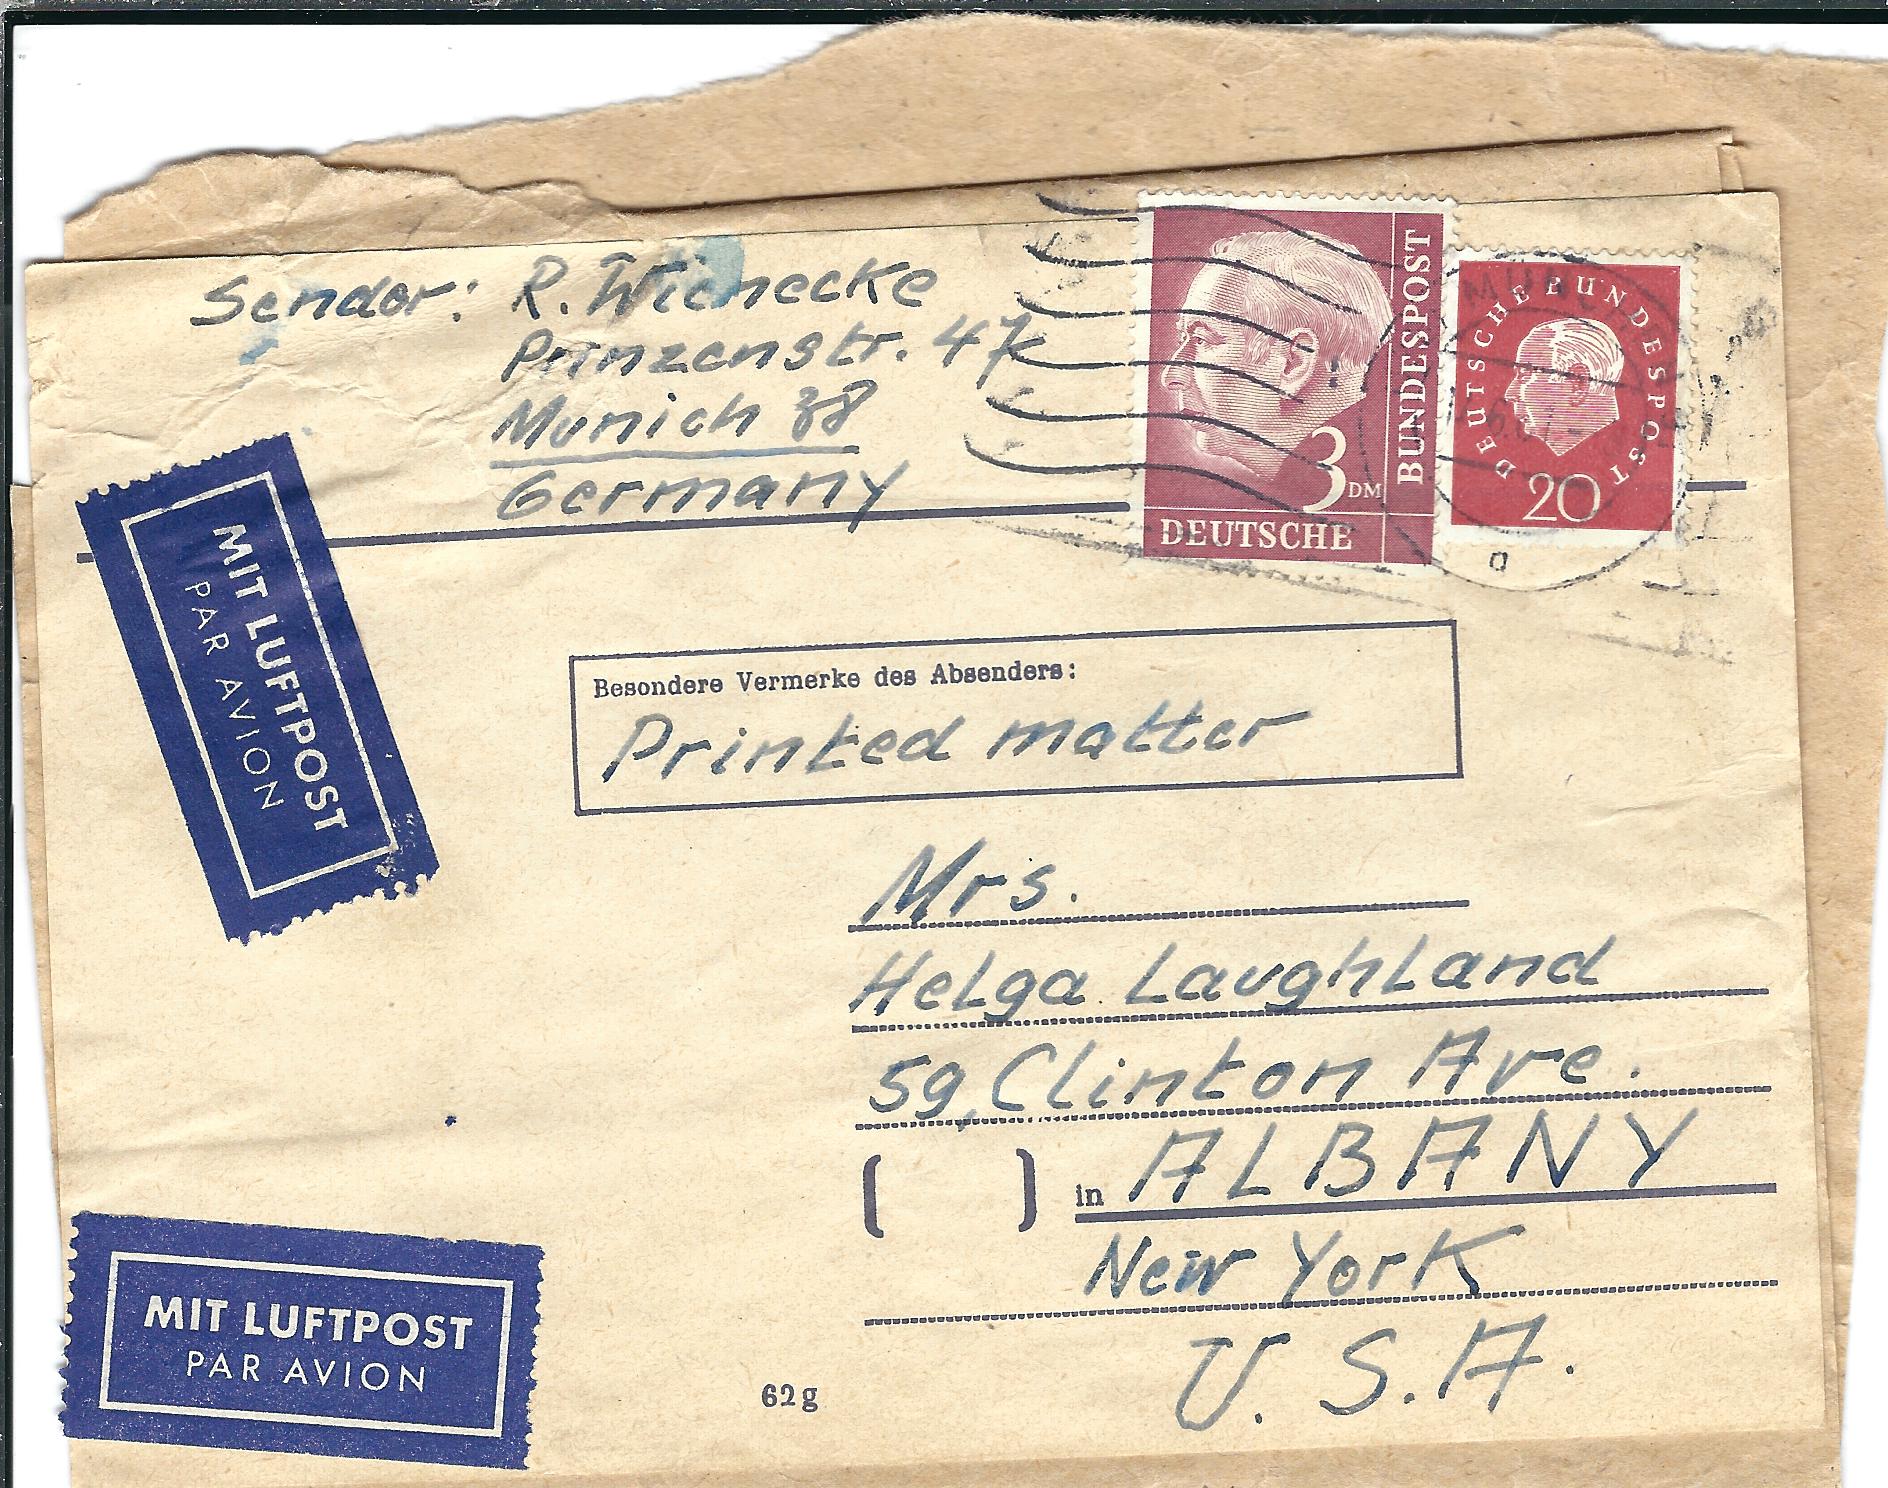 Sender: R. Wienecke
Prinzenstr. 47
Munich 38
Germany
3 DM
DEUTSCHE
BUNDESPOST
DEUTSCHE BUNDESPOST
20
a
MIT LUFTPOST
PAR AVION
Besondere Vermerke des Absenders:
Printed matter
Mrs.
Helga Laughland
59, Clinton Ave.
( ) in ALBANY
New York
U.S.A.
MIT LUFTPOST
PAR AVION
62g